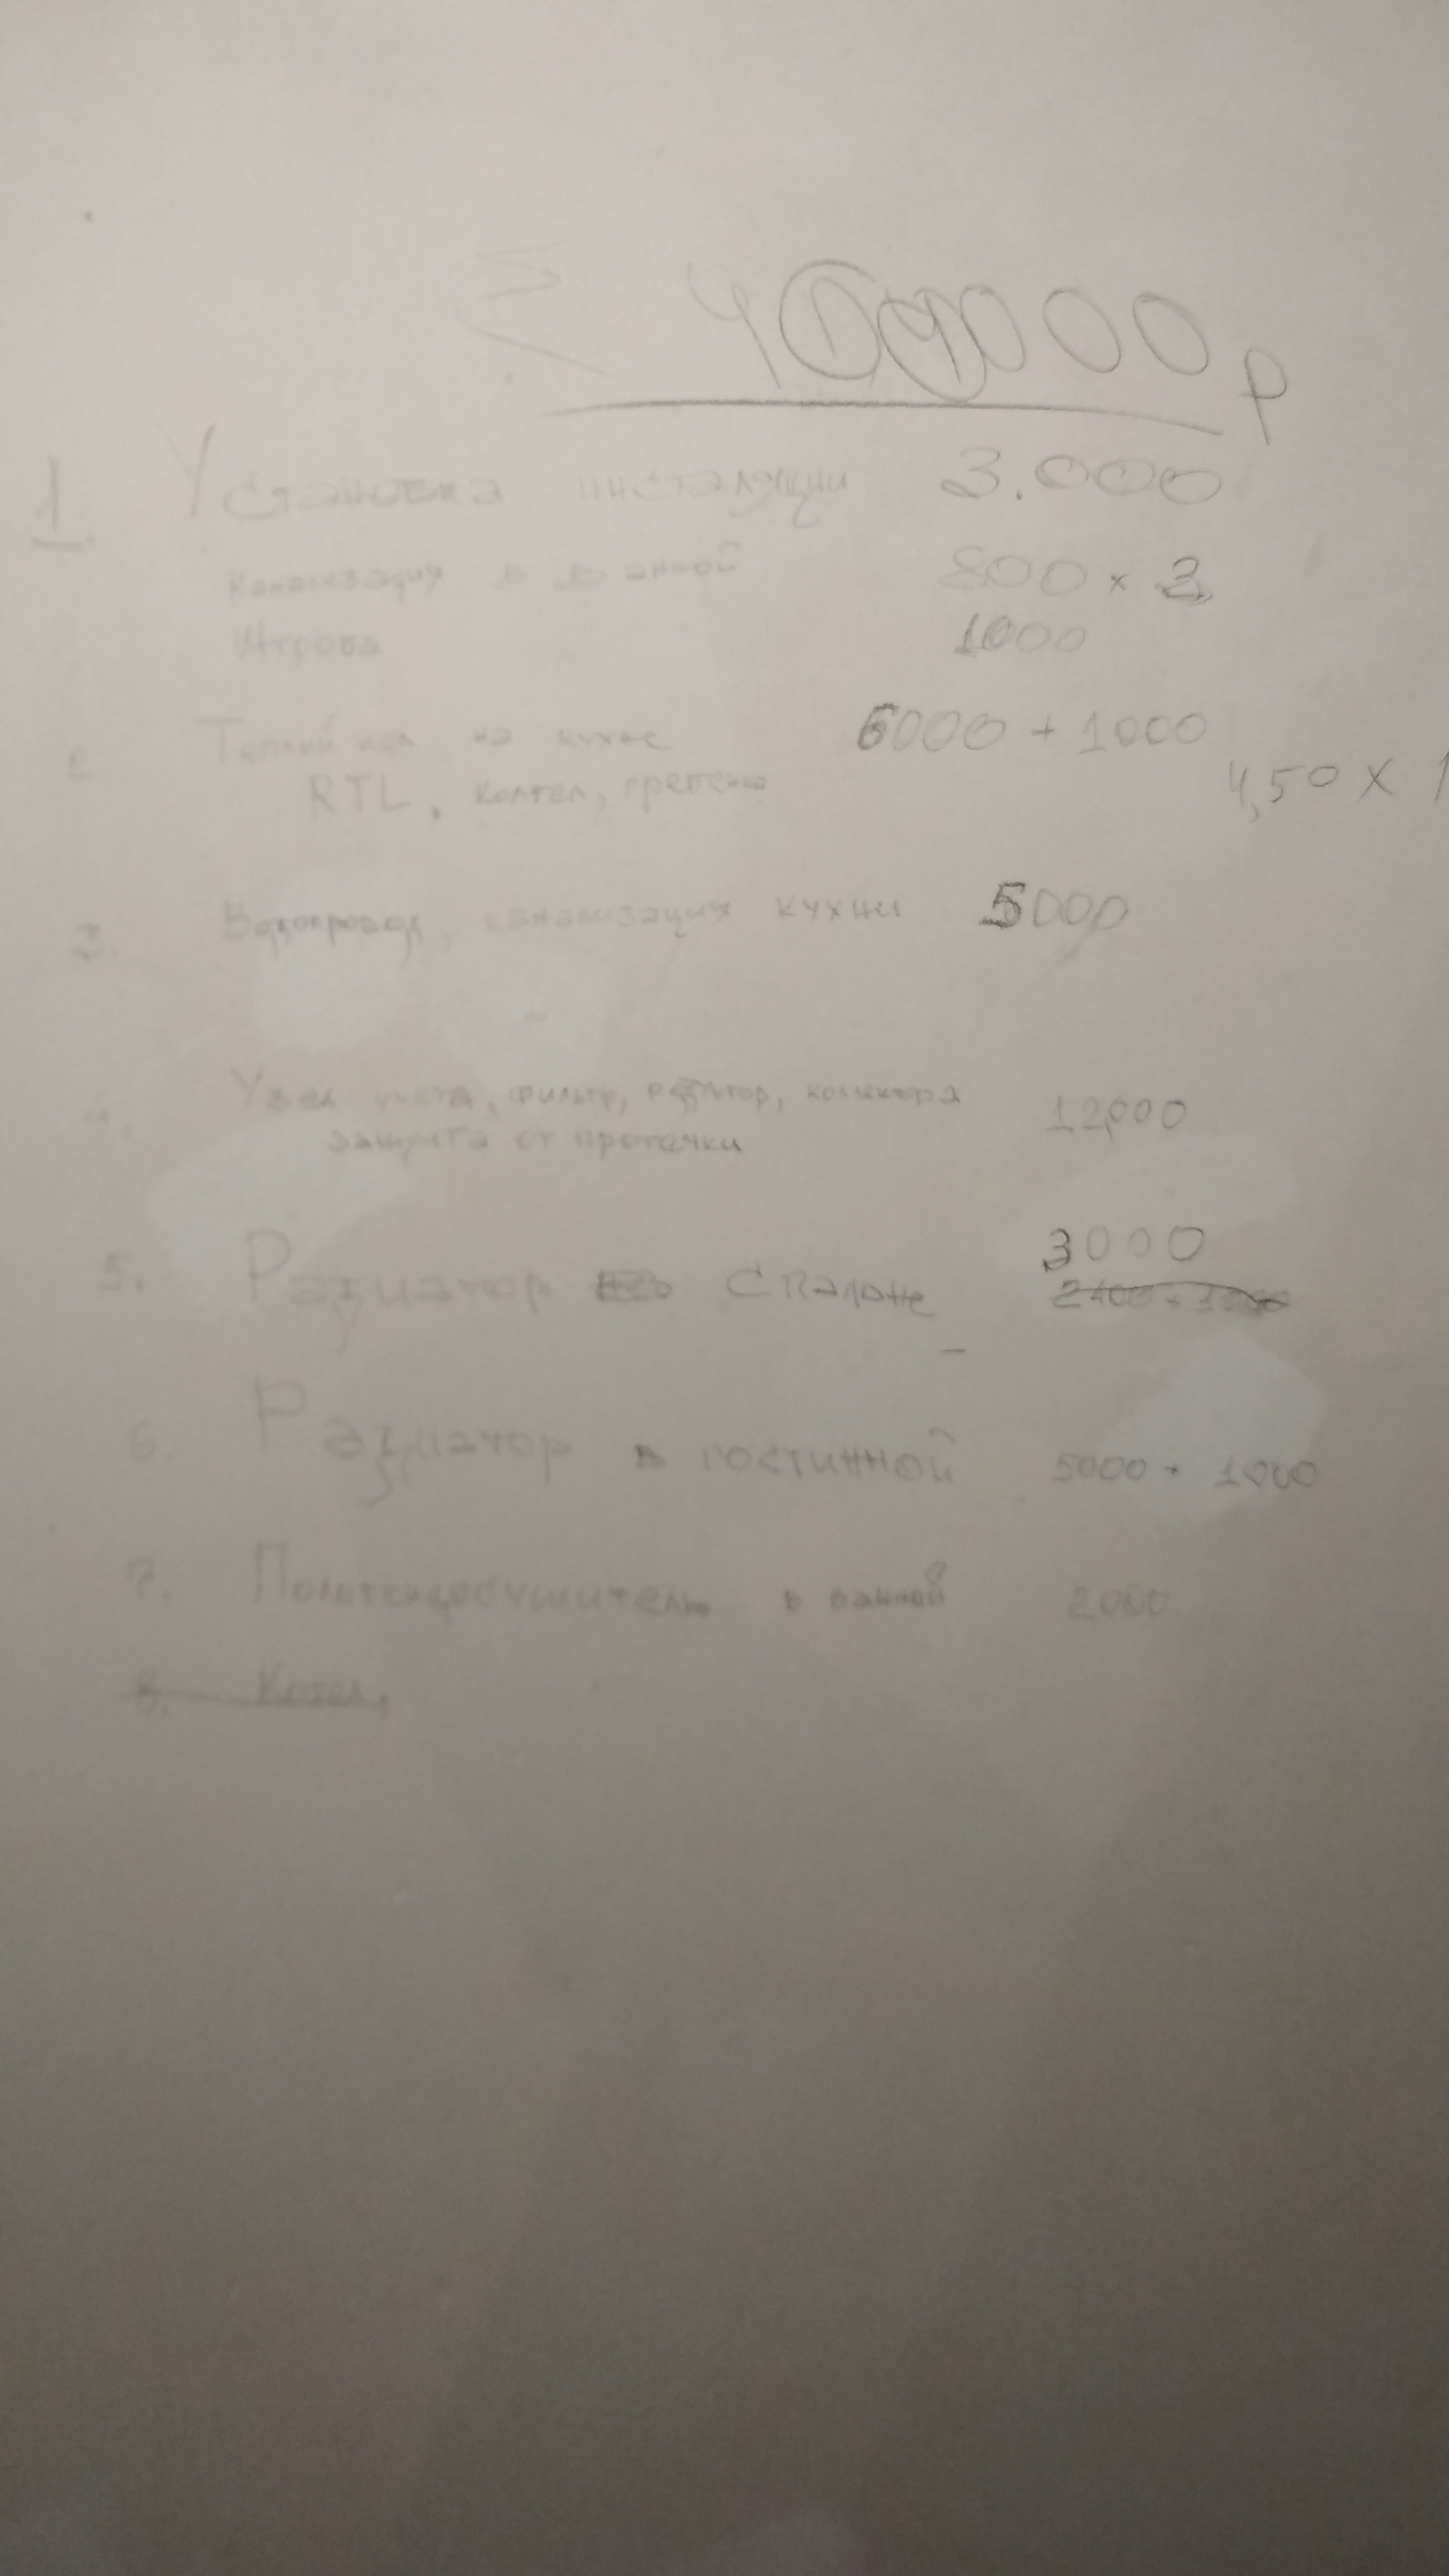 Σ 41000 р
1 Установка инсталяции 3.000
Канализация в ванной 800 × 2
Штроба 1000
2 Теплый пол на кухне 6000 + 1000
RTL, гребенка
4,50 X 1
3. Водопровод, канализация кухни 5000
4. Узел учета, фильтр, редуктор, коллектора 12000
защита от протечки
3000
5. Радиатор спальне
6. Радиатор в гостинной 5000 + 1000
7. Полотенцесушитель в ванной 2000
8. Котел,